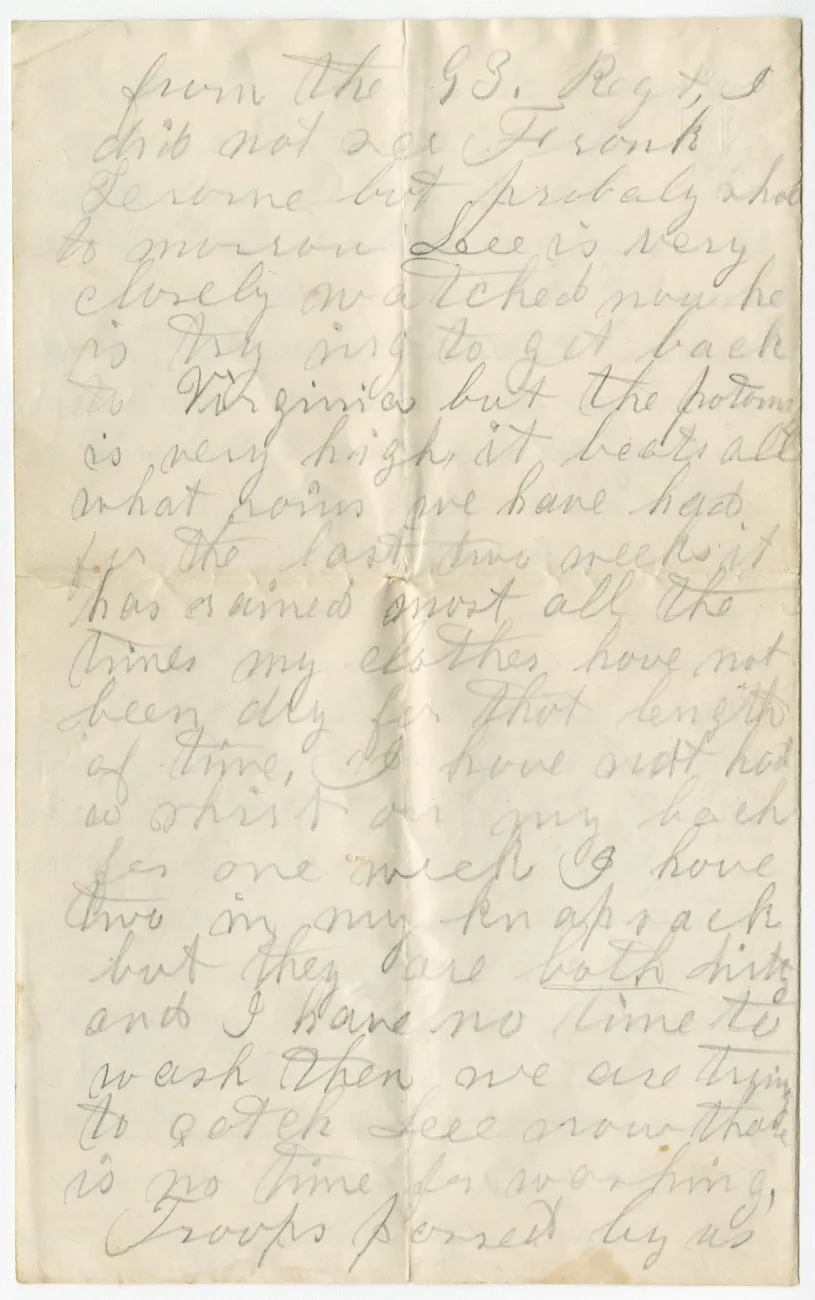 from the 93. Regt, I
did not see Frank
Jerome but probaly shal
to morrow Leee is very
closely watched now he
is try ing to get back
to Virginia but the potomac
is very high, it beats all
what rains we have had
for the last two weeks it
has rained most all the
times my clothes have not
been dry for that length
of time, I have not had
a shirt on my back
for one week I have
two in my knapsack
but they are both dirty
and I have no time to
wash then we are trying
to catch Leee now thare
is no time for washing,
Troops passed by us